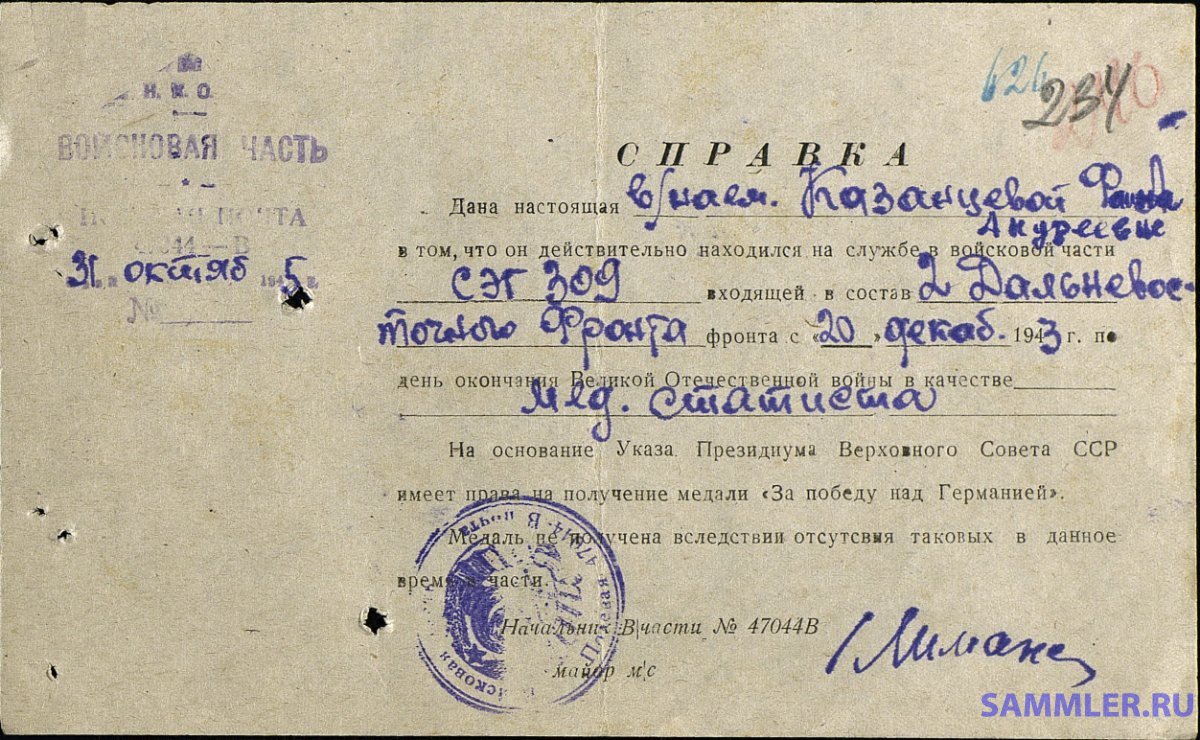 Н. К. О.
ВОЙСКОВАЯ ЧАСТЬ
ПОЧТА
44—В
31 октяб 1945 г.
№
626
234
СПРАВКА
Дана настоящая в/наем. Казанцевой
Андреевне
в том, что он действительно находился на службе в войсковой части
СЭГ 309 входящей в состав 2 Дальневос-
точного Фронта фронта с «20» декаб. 1943 г. по
день окончания Великой Отечественной войны в качестве
Мед. статиста
На основание Указа Президиума Верховного Совета ССР
имеет права на получение медали «За победу над Германией».
Медаль не получена вследствии отсутсвия таковых в данное
время в части.
Начальник В части № 47044В
майор м/с
Полевая почта 47044-В
SAMMLER.RU